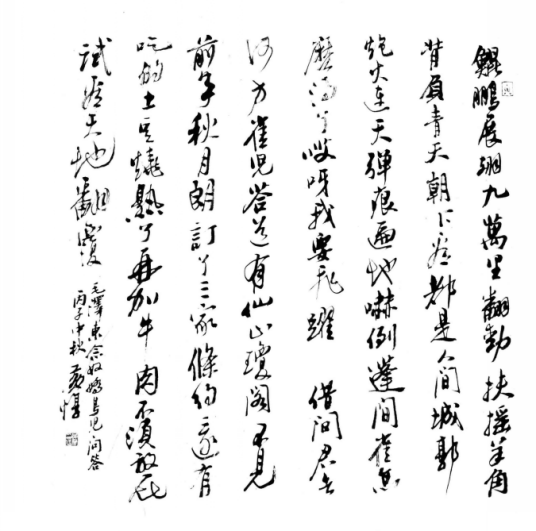 鯤鵬展翅九萬里翻動扶搖羊角
背負青天朝下看都是人間城郭
炮火連天彈痕遍地嚇倒蓬間雀怎
麼得了哎呀我要飛躍 借問君去
何方雀兒答道有仙山瓊閣不見
前年秋月朗訂了三家條約還有
吃的土豆燒熟了再加牛肉不須放屁
試看天地翻覆
毛澤東念奴嬌鳥兒問答
丙子中秋 黃惇